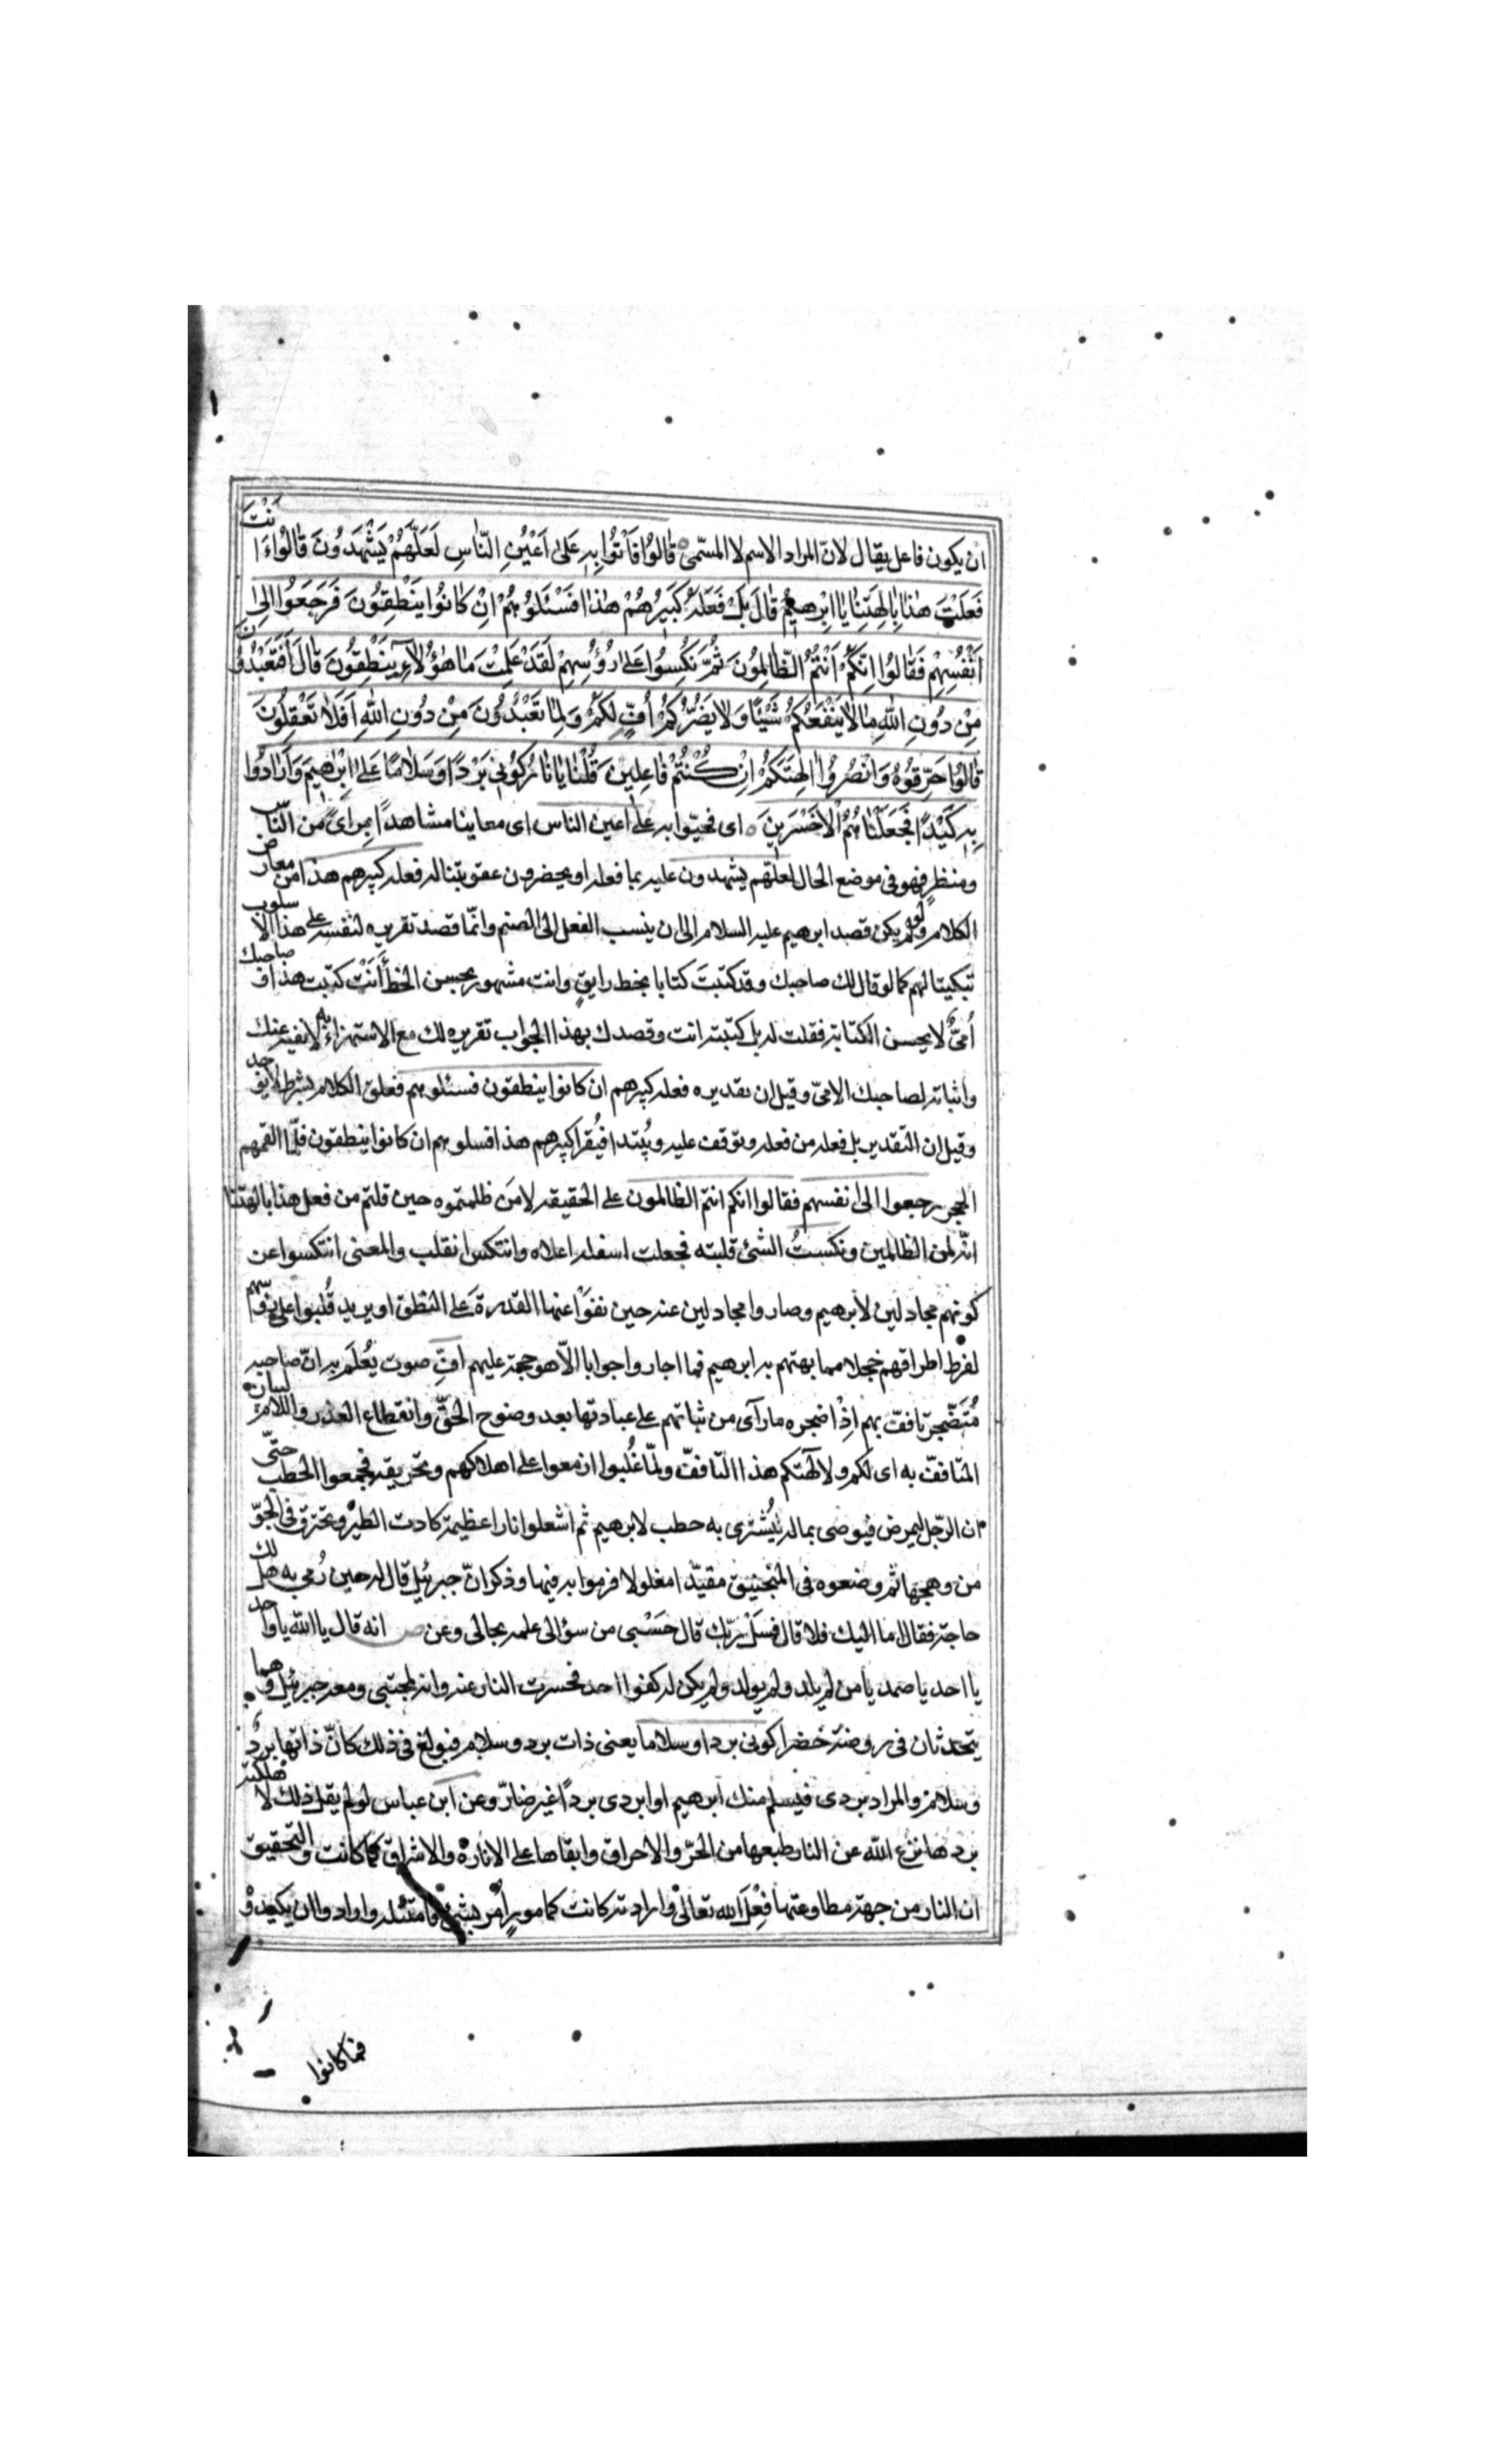 ان يكون فاعل يقال لانّ المراد الاسم لا المسمّى قٰالُوا فَأْتُوا بِهِ عَلىٰ اَعْيُنِ النّٰاسِ لَعَلَّهُمْ يَشْهَدُونَ قٰالُوا ءَاَنْتَ
فَعَلْتَ هٰذٰا بِاٰلِهَتِنٰا يٰا اِبْرٰهيمُ قٰالَ بَلْ فَعَلَهُ كَبيرُهُمْ هٰذٰا فَسْئَلُوهُمْ اِنْ كٰانُوا يَنْطِقُونَ فَرَجَعُوا اِلىٰ
اَنْفُسِهِمْ فَقٰالُوا اِنَّكُمْ اَنْتُمُ الظّٰالِمُونَ ثُمَّ نُكِسُوا عَلىٰ رُؤُسِهِمْ لَقَدْ عَلِمْتَ مٰا هٰؤُلٰاءِ يَنْطِقُونَ قٰالَ اَفَتَعْبُدُونَ
مِنْ دُونِ اللّٰهِ مٰا لٰا يَنْفَعُكُمْ شَيْئًا وَلٰا يَضُرُّكُمْ اُفٍّ لَكُمْ وَلِمٰا تَعْبُدُونَ مِنْ دُونِ اللّٰهِ اَفَلٰا تَعْقِلُونَ
قٰالُوا حَرِّقُوهُ وَانْصُرُوا اٰلِهَتَكُمْ اِنْ كُنْتُمْ فٰاعِلينَ قُلْنٰا يٰا نٰارُ كُونى بَرْدًا وَسَلٰامًا عَلىٰ اِبْرٰهيمَ وَاَرٰادُوا
بِهِ كَيْدًا فَجَعَلْنٰاهُمُ الْاَخْسَرينَ اى فجيئوا به على اعين الناس اى معاينا مشاهدًا بمراىً من النّاس
ومنظر فهو فى موضع الحال لعلّهم يشهدون عليه بما فعله او يحضرون عقوبتنا له فعله كبيرهم هذا من معاريض
الكلام ولم يكن قصد ابرهيم عليه السلام الى ان ينسب الفعل الى الصنم وانّما قصد تقريره لنفسه على هذا الاسلوب
تبكيتا لهم كما لو قال لك صاحبك وقد كتبتَ كتابا بخط رايقٍ وانت مشهور بحسن الخط أَنْتَ كتبت هذا وصاحبك
اُمّىٌّ لا يحسن الكتابة فقلت له بل كتبته انت وقصدك بهذا الجواب تقريره لك مع الاستهزاء به لا نفيه عنك
واثباته لصاحبك الامىّ وقيل ان تقديره فعله كبيرهم ان كانوا ينطقون فسئلوهم فعلق الكلام بشرط لا يوجد
وقيل ان التقدير بل فعله من فعله وتوقف عليه ويُبتدا فيُقرا كبيرهم هذا فسلوهم ان كانوا ينطقون فلمّا القمهم
الحجر رجعوا الى انفسهم فقالوا انكم انتم الظالمون على الحقيقه لا مَن ظلمتموه حين قلتم من فعل هذا بالهتنا
انّه لمن الظالمين ونكستُ الشئ قلبته فجعلت اسفله اعلاه وانتكس انقلب والمعنى انتكسوا عن
كونهم مجادلين لابرهيم وصاروا مجادلين عنه حين نفوا عنها القدرة على النطق او يريد قُلبوا على رؤسهم
لفرط اطراقهم خجلا مما بهتهم به ابرهيم فما احاروا جوابا الاّ هو حجة عليهم افّ صوت يُعْلَم به انّ صاحبه
مُتَضجر تافف بهم اذْا ضجره ما رآى من ثباتهم على عبادتها بعد وضوح الحقّ وانقطاع العذر واللام لبيان
المتافّف به اى لكم ولآلهتكم هذا التافف ولمّا غُلبوا ازمعوا على اهلاكهم وتحريقه فجمعوا الحطب حتّى
ان الرّجل ليمرض فيوصى بماله يُشْترى به حطب لابرهيم ثم اشعلوا نارا عظيمة كادت الطير تحترق فى الجوّ
من وهجها ثم وضعوه فى المنجنيق مقيّدا مغلولا فرموا به فيها وذكر انّ جبرئيل قال له حين رُمى به هل لك
حاجة فقال اما اليك فلا قال فسَلْ ربّك قال حَسْبى من سؤالى علمه بحالى وعن انه قال يا الله يا واحد
يا احد يا صمد يا من لم يلد ولم يولد ولم يكن له كفوا احد فحسرت النار عنه وانه لمحتبى ومعه جبرئيل وهما
يتحدثان فى روضة خضرا كونى بردا وسلاما يعنى ذات برد وسلام فبولغ فى ذلك كانّ ذاتها بردٌ
وسلام والمراد بردى فيسلم منك ابرهيم او ابردى بردًا غير ضارّ وعن ابن عباس لو لم يقل ذلك لاهلكته
بردها نزع الله عن النار طبعها من الحرّ والاحراق وابقاها على الانارة والاشراق كما كانت والتحقيق
ان النار من جهة مطاوعتها فِعْلَ الله تعالى وارادته كانت كمامورٍ اُمر بشئ فامتثله وارادوا ان يكيدوْ
فما كانوا